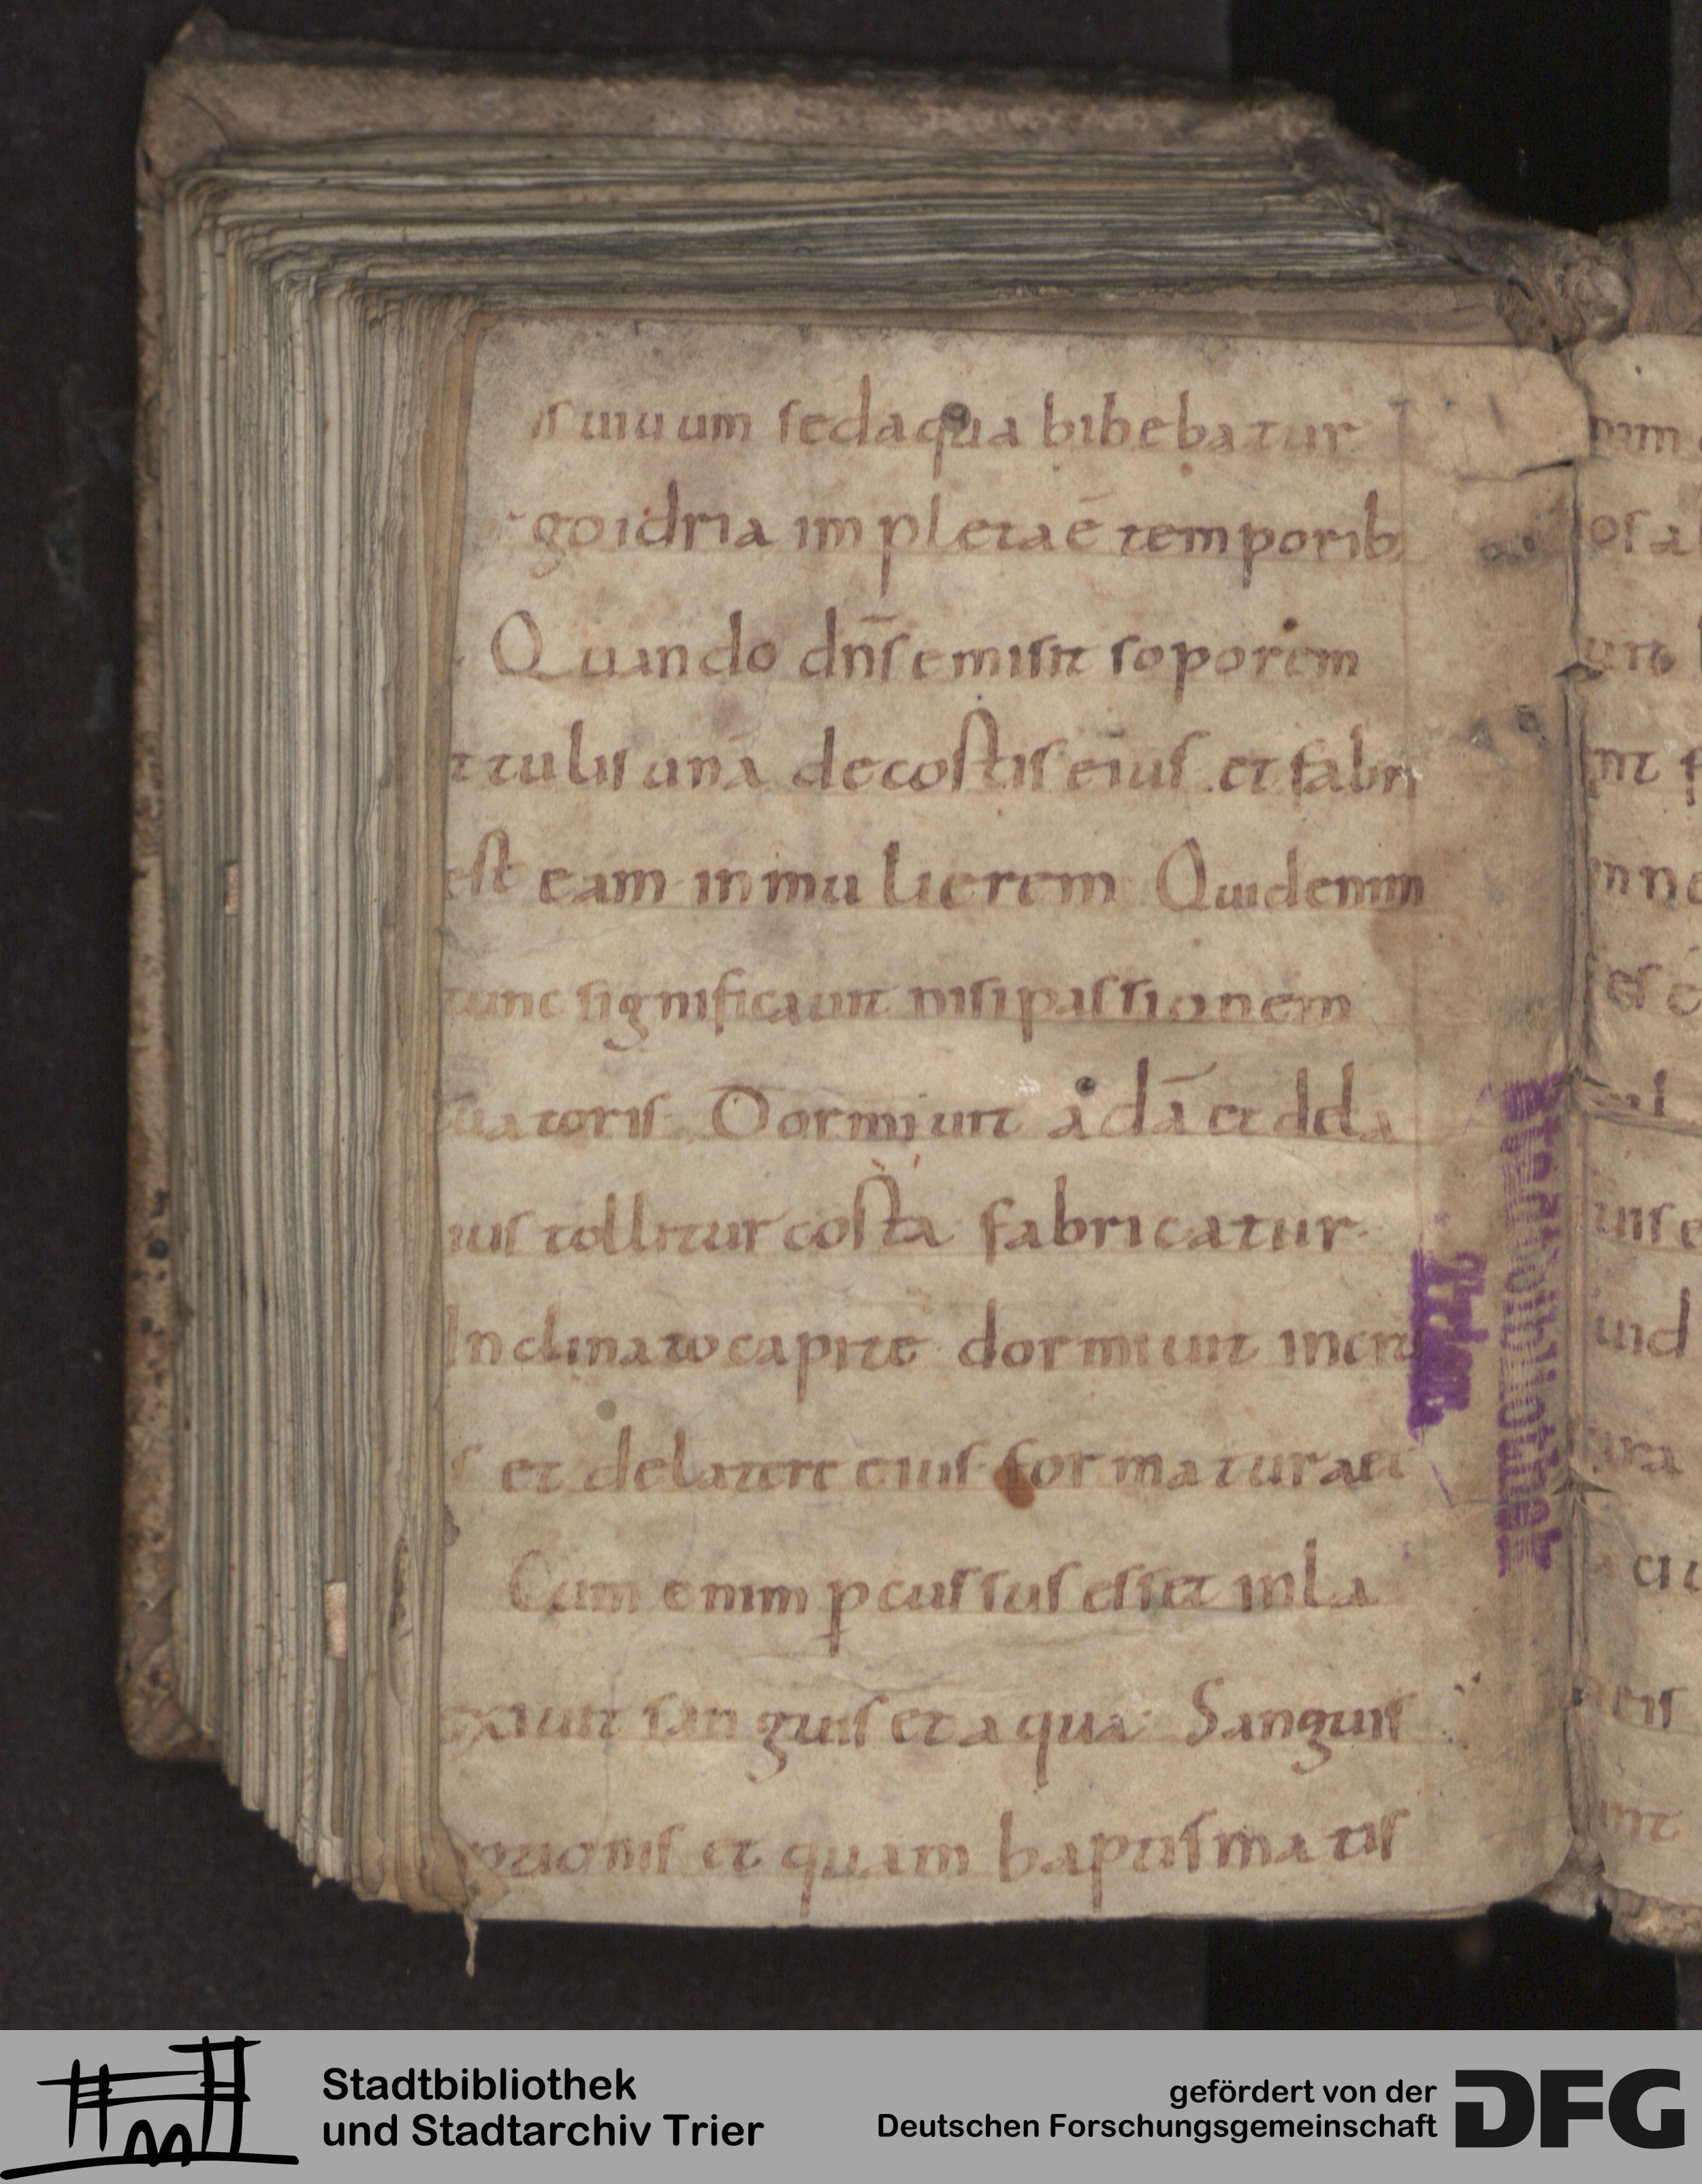 is uiuum sed aqua bibebatur
rgo idria impleta ē temporib;
Quando dn̄s emisit soporem
t tulit unā de costis eius et fabri
est eam in mulierem Quid enim
tunc significauit nisi passionem
uatoris Dormiuit adā et dela
ius tollitur costa fabricatur
Inclinato capite dormiuit in cru
s et de latere eius formatur aec
Cum enim ꝑcussus esset in la
exiuit sanguis et aqua Sanguis
ptionis et quam baptismatis
Stadtbibliothek
Trier
Stadtbibliothek
und Stadtarchiv Trier
gefördert von der
Deutschen Forschungsgemeinschaft
DFG